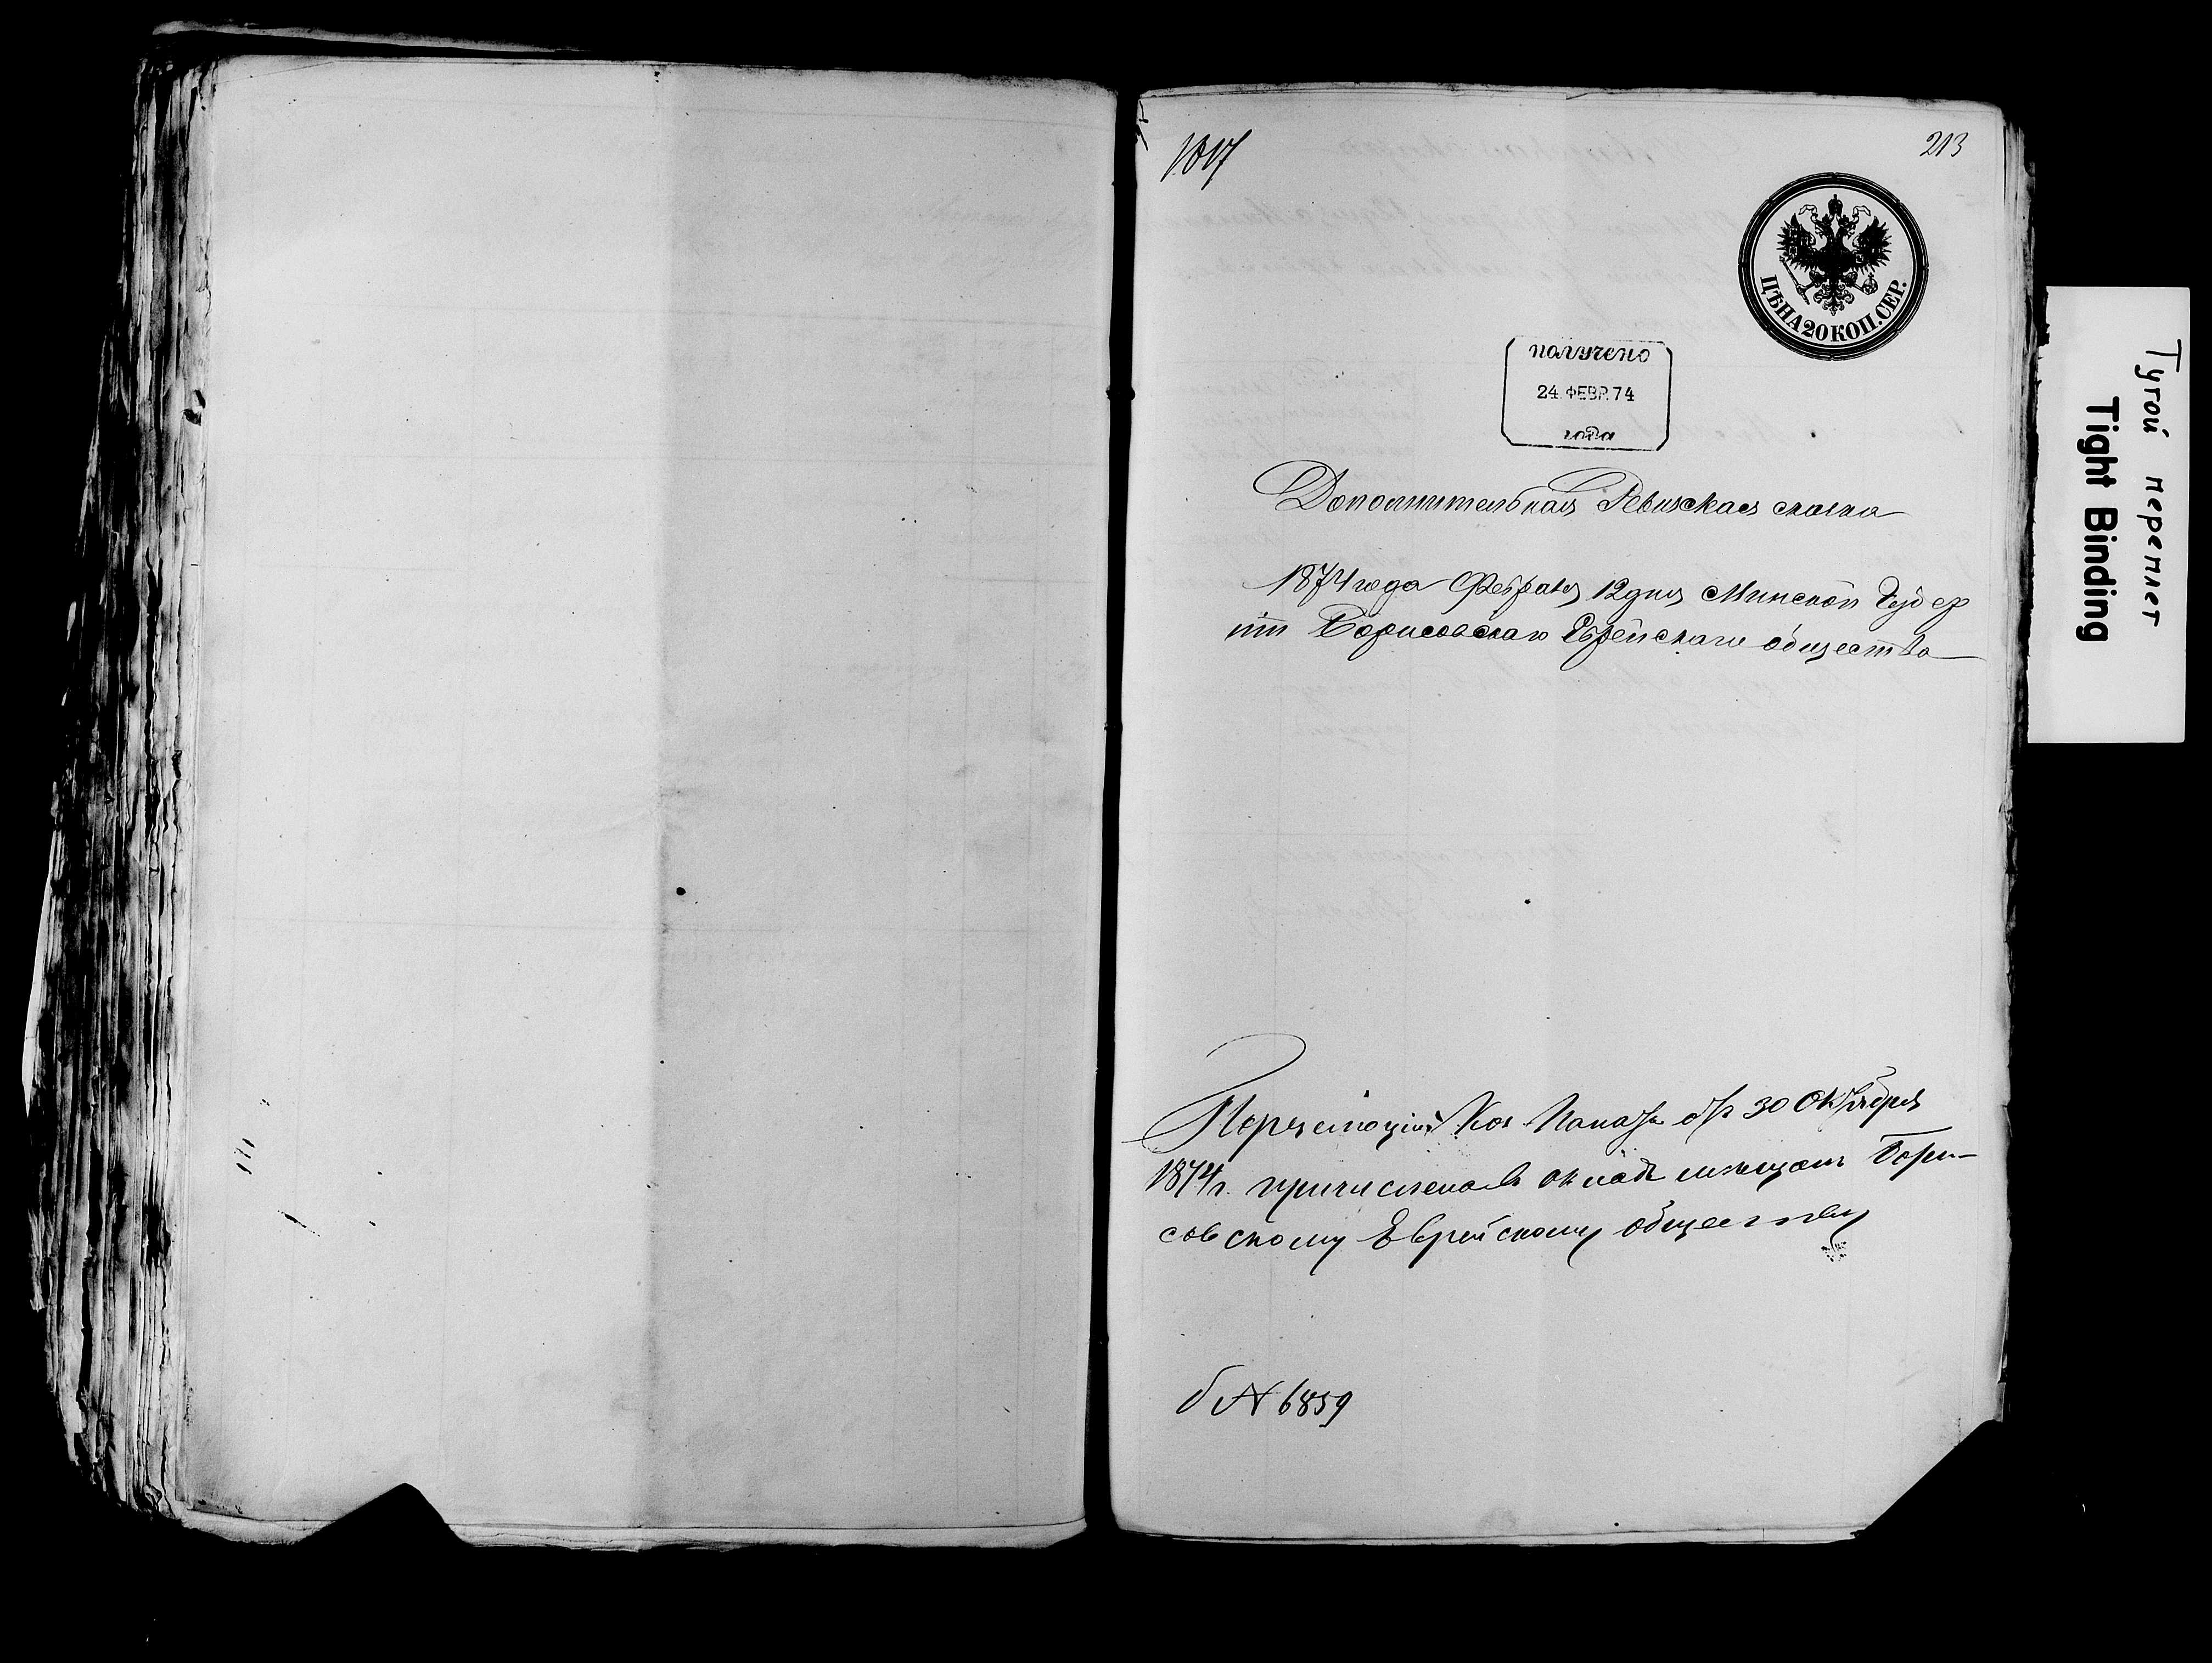 1817
213
ЦѢНА 20 КОП. СЕР.
получено
24 ФЕВР. 74
года
Дополнительная Ревизская сказка
1874 года Февраля 12 дня Минской Губер
нии Борисовскаго Еврейскаго общества
30 Октября
1874 г. причислена въ окладъ мещанъ Бори-
совскому Еврейскому обществу
№ 6859
Тугой переплет
Tight Binding